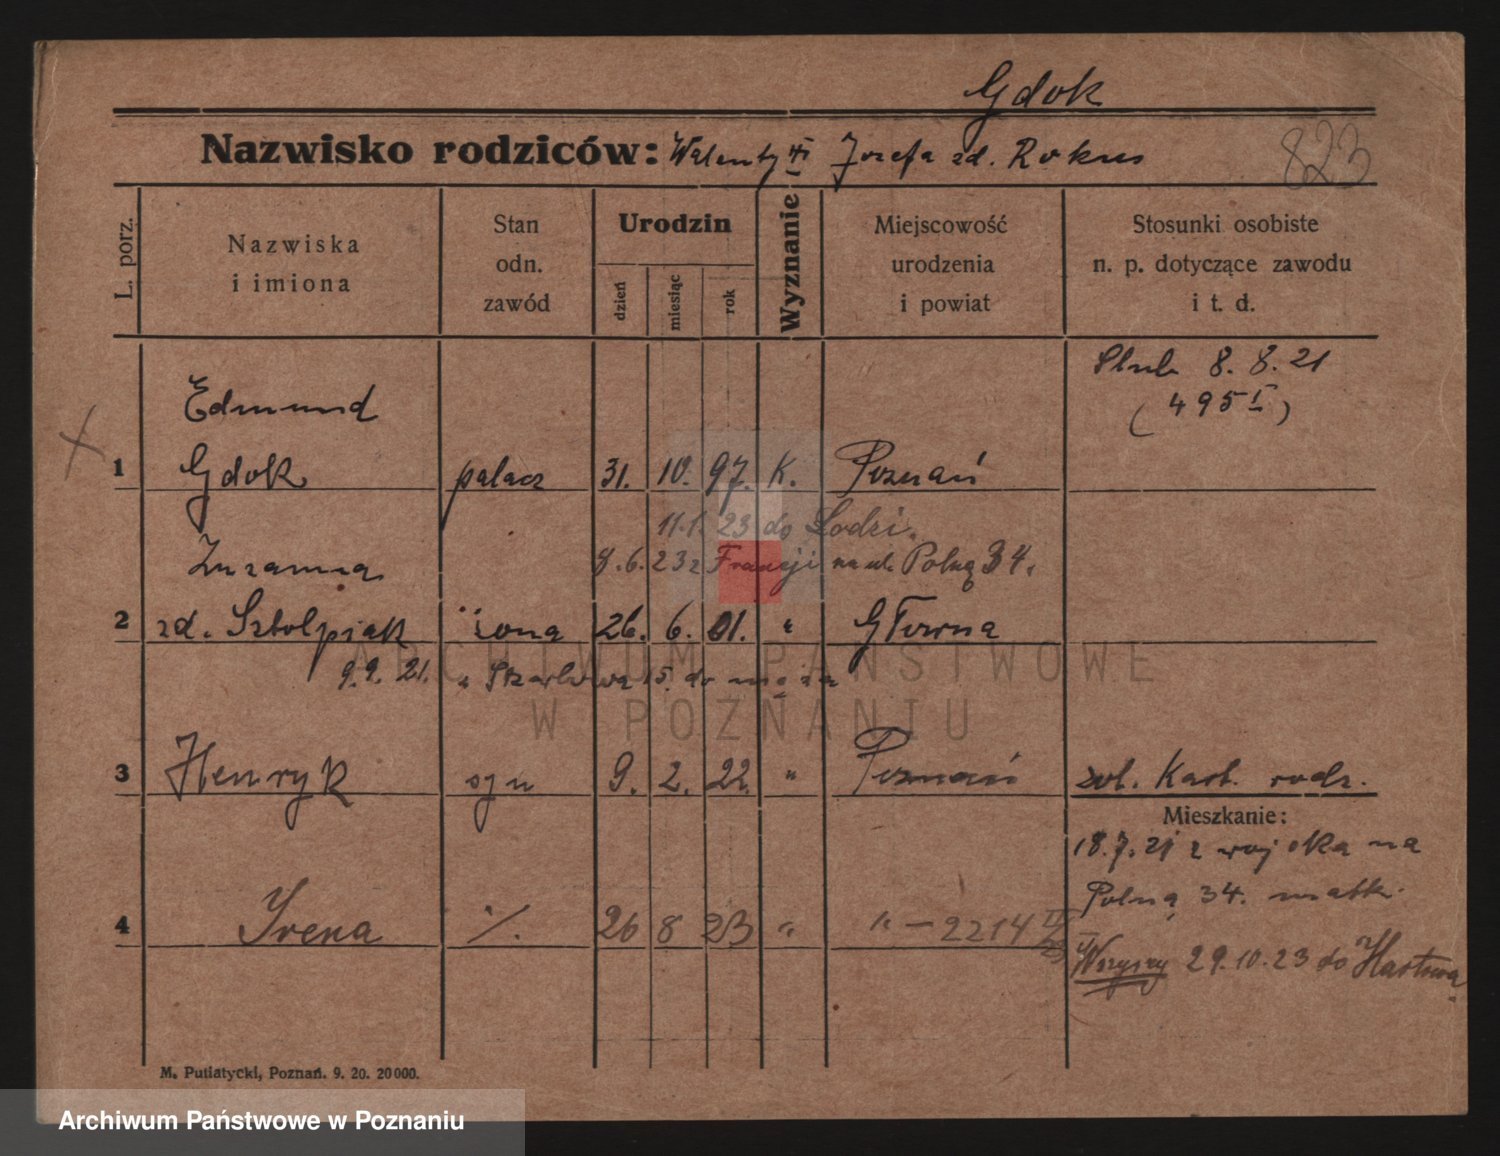 Gdok
Nazwisko rodziców: Walenty Józefa zd. Rokus
823
L. porz.
Nazwiska
i imiona
Stan
odn.
zawód
Urodzin
dzień
miesiąc
rok
Wyznanie
Miejscowość
urodzenia
i powiat
Stosunki osobiste
n. p. dotyczące zawodu
i t. d.
Ślub 8. 8. 21
(495 I)
Edmund
1 Gdok palacz 31. 10. 97. K. Poznań
11.1. 23 do Łodzi.
8.6.23 z Francji na ul. Polną 34.
Zuzanna
2 zd. Sztolpiak żona 26. 6. 01. " Główna
9.9.21. 15. do męża
3 Henryk syn 9. 2. 22. " Poznań
zob. Kart. rodz.
Mieszkanie:
18.7.21 z wojska na
Polną 34. matki
4 Irena ./. 26 8 23 " " — 2214
Wszyscy 29.10.23 do
M. Putiatycki, Poznań. 9. 20. 20 000.
ARCHIWUM PAŃSTWOWE
W POZNANIU
Archiwum Państwowe w Poznaniu